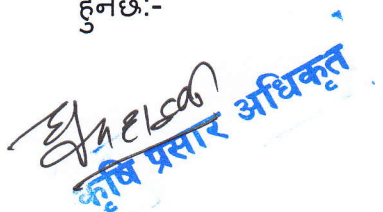 हुनेछ:-
कृषि प्रसार अधिकृत